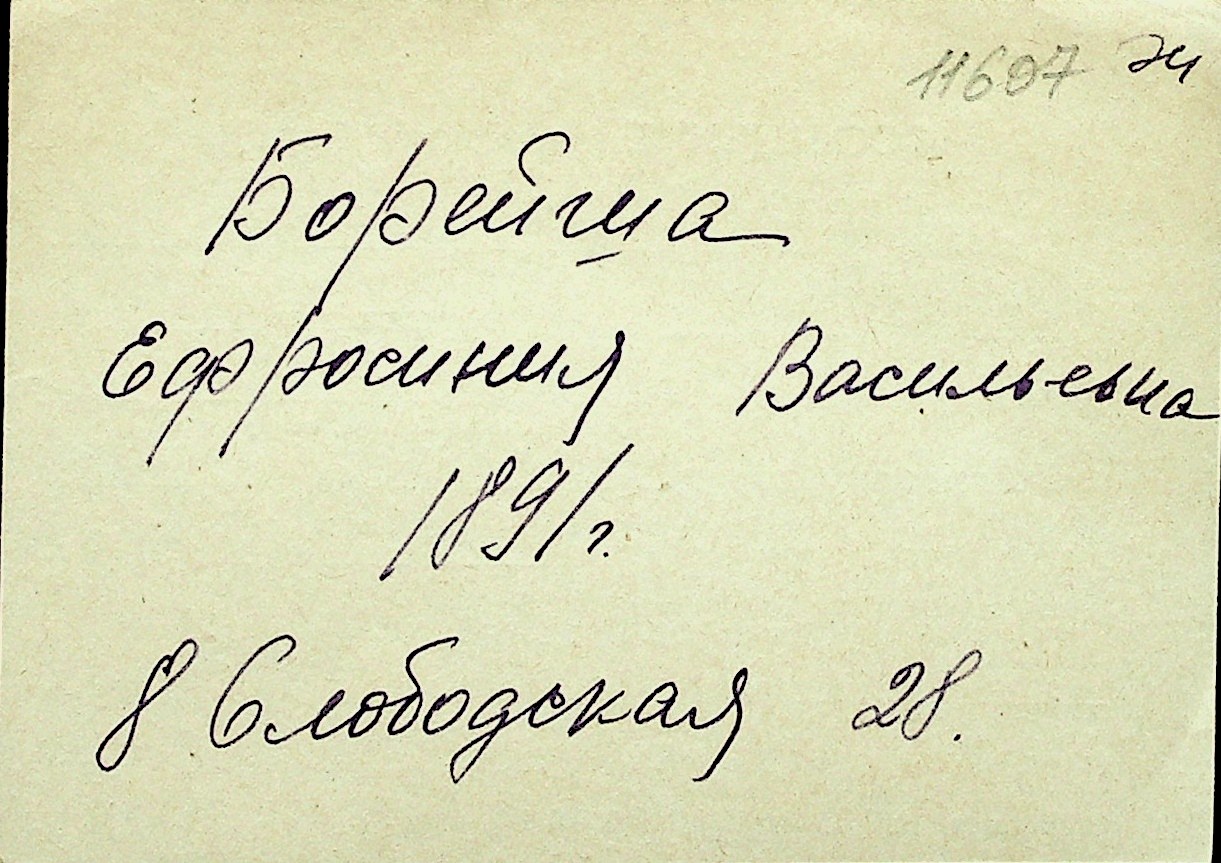 11607 эч
Борейша
Ефросиния Васильевна
1891 г.
8 Слободская 28.